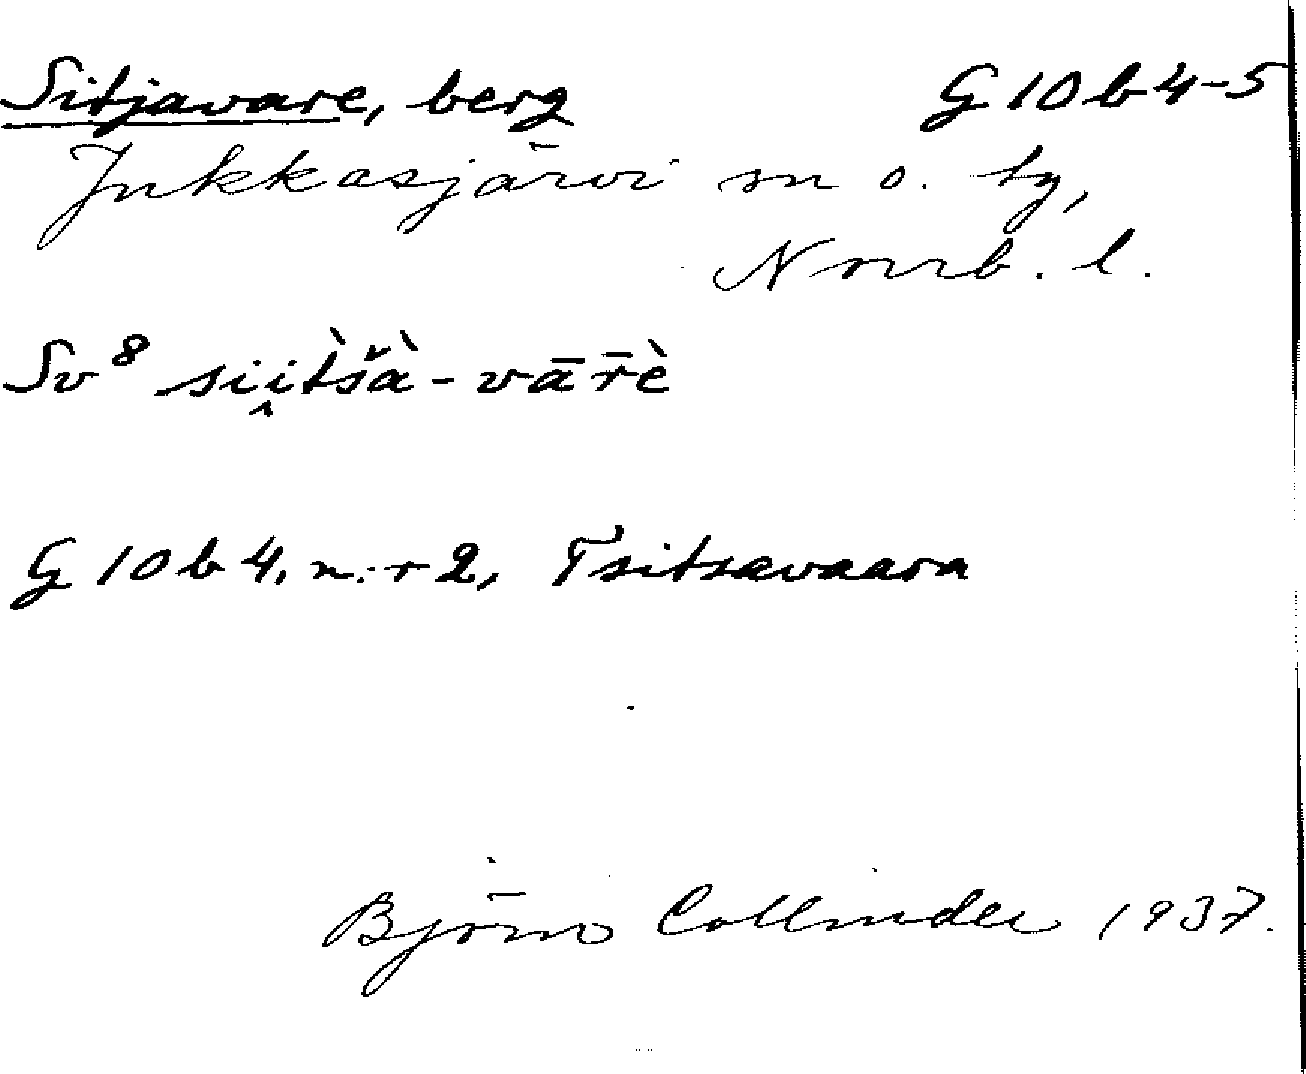 Sitjavare, berg G 10 b 4-5
Jukkasjärvi sn o. tg,
Norrb. l.
Sv⁸ sii̭t̀šà-vār̄è
G 10 b 4, n:r 2, Tsitsavaara
Björn Collinder 1937.